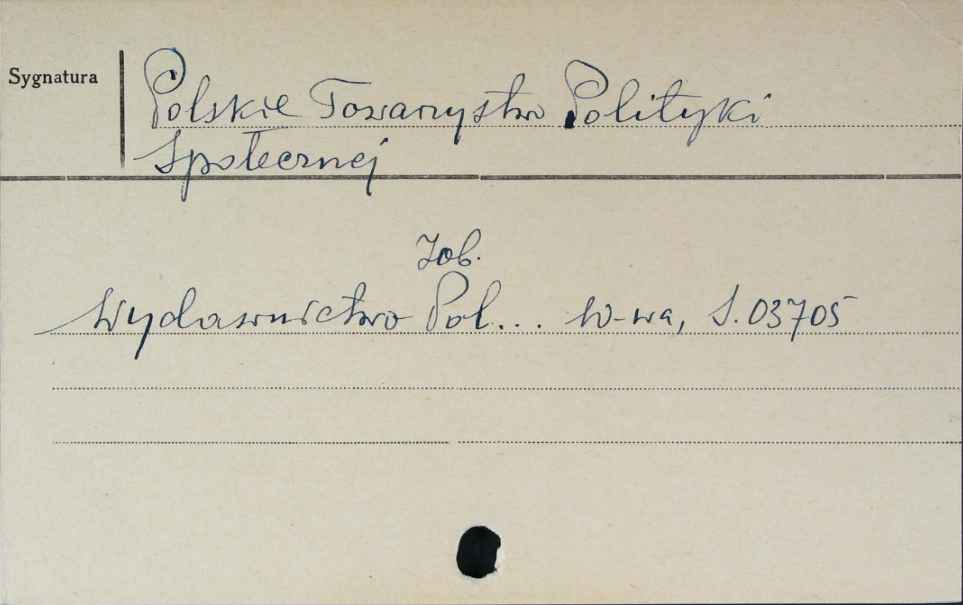 Sygnatura
Polskie Towarzystwo Polityki
Społecznej
Zob.
Wydawnictwo Pol... W-wa, S.03705